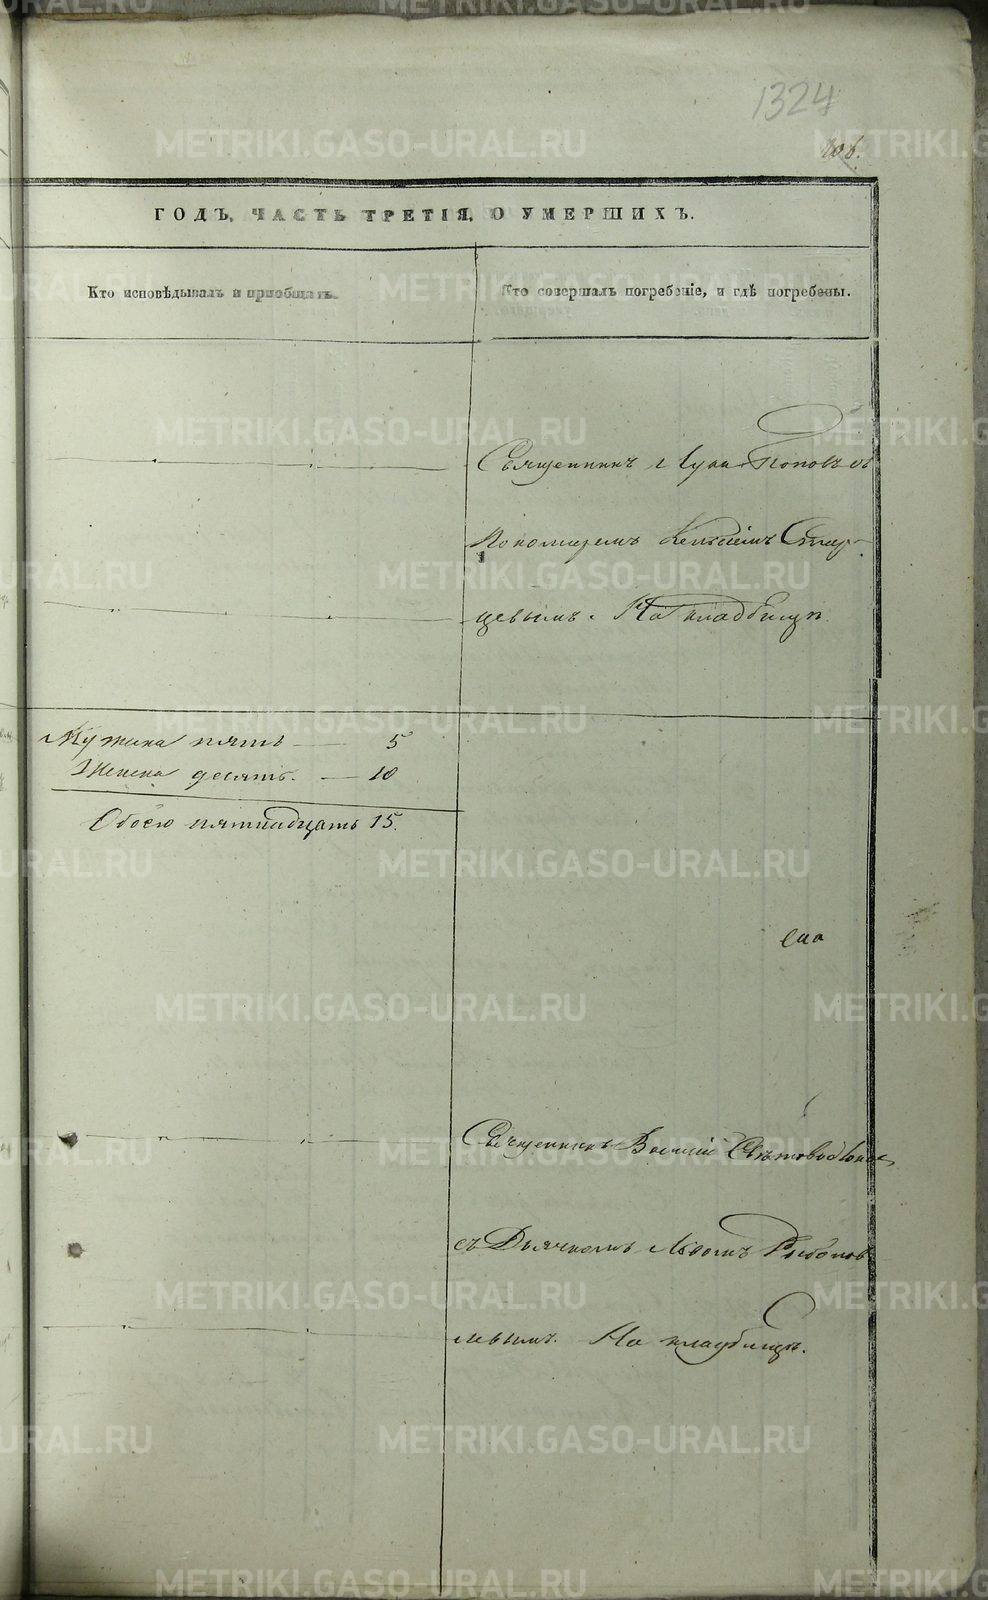 1324
106.
ГОДЪ, ЧАСТЬ ТРЕТІЯ, О УМЕРШИХЪ.
Кто исповѣдывалъ и пріобщалъ.
Кто совершалъ погребеніе, и гдѣ погребены.
Священникъ Лука Поповъ съ
пономаремъ Стар-
цевымъ. На кладбищѣ.
Мужска пять — 5
Женска десять. — 10
Обоего пятнадцать 15.
Священникъ Василій Свѣтовидовъ
съ Дьячкомъ Львомъ
На кладбищѣ.
METRIKI.GASO-URAL.RU